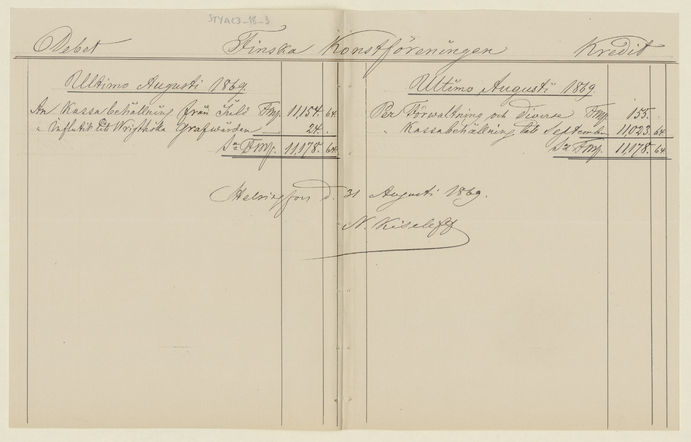 STYAC3-18-3
Debet Finska Konstföreningen Kredit
Ultimo Augusti 1869
An Kassabehållning från Juli Fmp. 11,154. 64.
" Influtit till Wrightska Grafvården 24. -
Sa Fmp. 11,178. 64.
Ultimo Augusti 1869
Per Förvaltning och diverse Fmp. 155. -
" Kassabehållning till September 11,023. 64
Sa Fmp. 11,178. 64.
Helsingfors d. 31 Augusti 1869.
N. Kiseleff